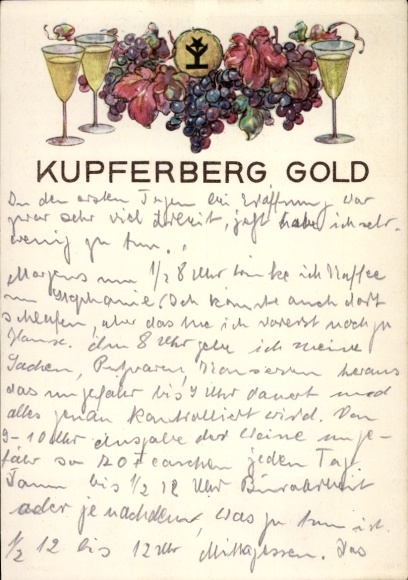 KUPFERBERG GOLD
In den ersten Tagen bei Eröffnung war
zwar sehr viel Arbeit, jetzt habe ich sehr
wenig zu tun.
Morgens um 1/2 8 Uhr trinke ich Kaffee
im Stephanie. (Ich könnte auch dort
schlafen, aber das tue ich vorerst noch zu
Hause. Um 8 Uhr gebe ich meine
Sachen, Konserven heraus
das ungefähr bis 9 Uhr dauert und
alles genau kontrolliert wird. Von
9-10 Uhr Ausgabe der Weine unge-
fähr so 120 Flaschen jeden Tag.
Dann bis 1/2 12 Uhr Büroarbeit
oder je nachdem, was zu tun ist.
1/2 12 bis 12 Uhr Mittagessen. Das